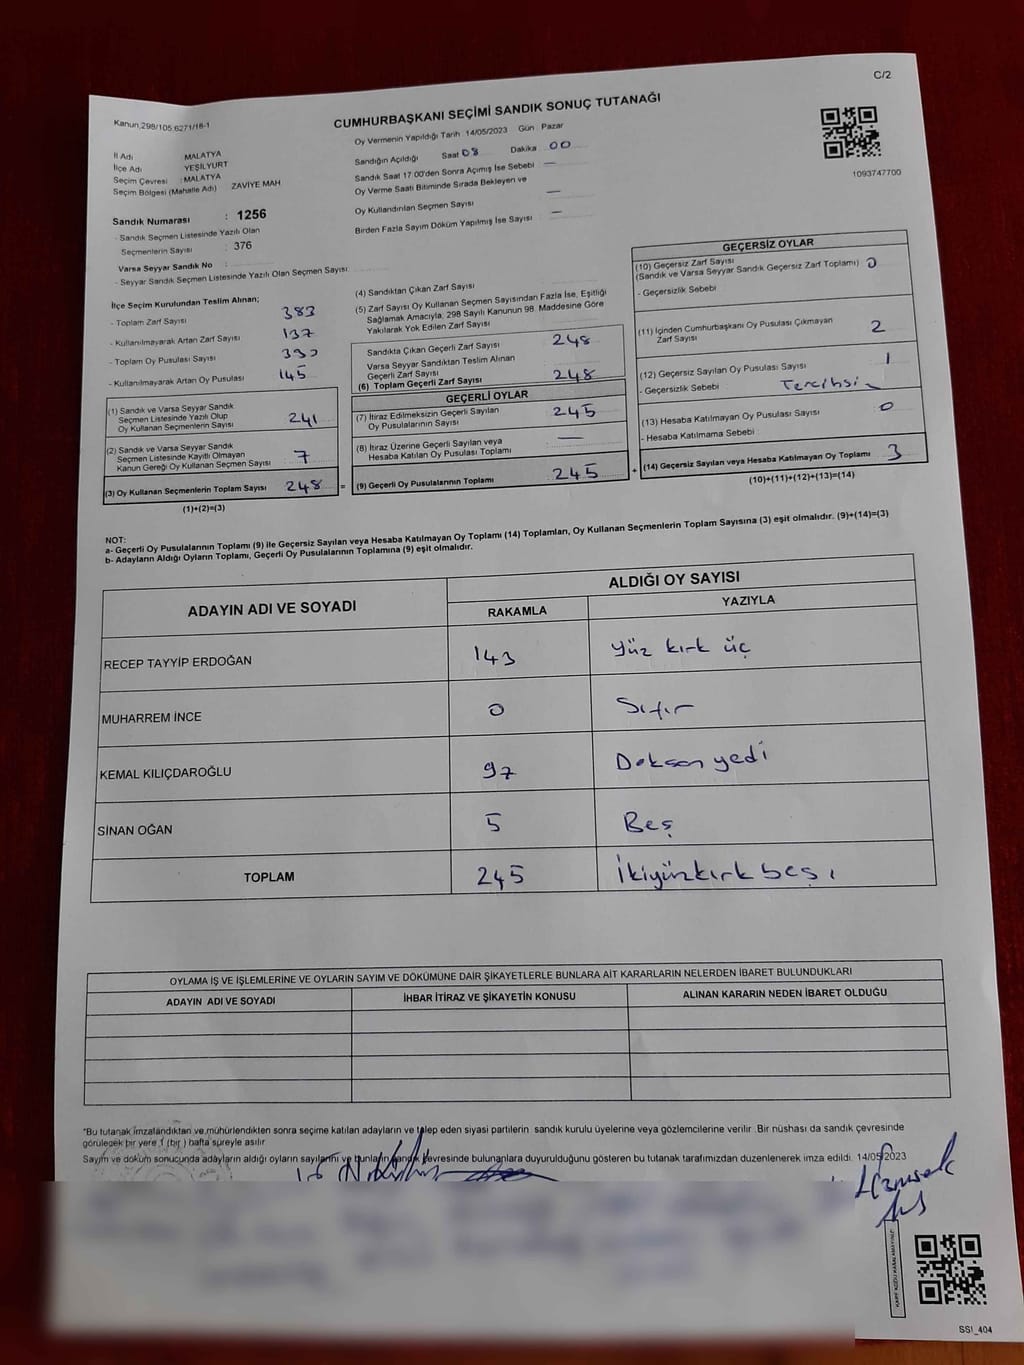 C/2
Kanun,298/105,6271/18-1
CUMHURBAŞKANI SEÇİMİ SANDIK SONUÇ TUTANAĞI
Oy Vermenin Yapıldığı Tarih 14/05/2023 Gün Pazar
İl Adı : MALATYA
İlçe Adı YEŞİLYURT
Seçim Çevresi : MALATYA
Seçim Bölgesi (Mahalle Adı) ZAVİYE MAH
Sandık Numarası : 1256
- Sandık Seçmen Listesinde Yazılı Olan
Seçmenlerin Sayısı : 376
Varsa Seyyar Sandık No :
- Seyyar Sandık Seçmen Listesinde Yazılı Olan Seçmen Sayısı:
Sandığın Açıldığı Saat 08 Dakika 00
Sandık Saat 17:00'den Sonra Açımış İse Sebebi —
Oy Verme Saati Bitiminde Sırada Bekleyen ve
Oy Kullandırılan Seçmen Sayısı —
Birden Fazla Sayım Döküm Yapılmış İse Sayısı —
1093747700
İlçe Seçim Kurulundan Teslim Alınan;
- Toplam Zarf Sayısı 383
- Kullanılmayarak Artan Zarf Sayısı 137
- Toplam Oy Pusulası Sayısı
- Kullanılmayarak Artan Oy Pusulası 145
(1) Sandık ve Varsa Seyyar Sandık
Seçmen Listesinde Yazılı Olup
Oy Kullanan Seçmenlerin Sayısı 241
(2) Sandık ve Varsa Seyyar Sandık
Seçmen Listesinde Kayıtlı Olmayan
Kanun Gereği Oy Kullanan Seçmen Sayısı 7
(3) Oy Kullanan Seçmenlerin Toplam Sayısı 248 =
(1)+(2)=(3)
(4) Sandıktan Çıkan Zarf Sayısı
(5) Zarf Sayısı Oy Kullanan Seçmen Sayısından Fazla İse, Eşitliği
Sağlamak Amacıyla, 298 Sayılı Kanunun 98. Maddesine Göre
Yakılarak Yok Edilen Zarf Sayısı
Sandıkta Çıkan Geçerli Zarf Sayısı 248
Varsa Seyyar Sandıktan Teslim Alınan
Geçerli Zarf Sayısı
(6) Toplam Geçerli Zarf Sayısı 248
GEÇERLİ OYLAR
(7) İtiraz Edilmeksizin Geçerli Sayılan
Oy Pusulalarının Sayısı 245
(8) İtiraz Üzerine Geçerli Sayılan veya
Hesaba Katılan Oy Pusulası Toplamı —
(9) Geçerli Oy Pusulalarının Toplamı 245 +
GEÇERSİZ OYLAR
(10) Geçersiz Zarf Sayısı
(Sandık ve Varsa Seyyar Sandık Geçersiz Zarf Toplamı) 0
- Geçersizlik Sebebi
(11) İçinden Cumhurbaşkanı Oy Pusulası Çıkmayan
Zarf Sayısı 2
(12) Geçersiz Sayılan Oy Pusulası Sayısı 1
- Geçersizlik Sebebi
(13) Hesaba Katılmayan Oy Pusulası Sayısı 0
- Hesaba Katılmama Sebebi :
(14) Geçersiz Sayılan veya Hesaba Katılmayan Oy Toplamı 3
(10)+(11)+(12)+(13)=(14)
NOT:
a- Geçerli Oy Pusulalarının Toplamı (9) ile Geçersiz Sayılan veya Hesaba Katılmayan Oy Toplamı (14) Toplamları, Oy Kullanan Seçmenlerin Toplam Sayısına (3) eşit olmalıdır. (9)+(14)=(3)
b- Adayların Aldığı Oyların Toplamı, Geçerli Oy Pusulalarının Toplamına (9) eşit olmalıdır.
ADAYIN ADI VE SOYADI
ALDIĞI OY SAYISI
RAKAMLA YAZIYLA
RECEP TAYYİP ERDOĞAN 143 Yüz kırk üç
MUHARREM İNCE 0 Sıfır
KEMAL KILIÇDAROĞLU 97 Doksan yedi
SİNAN OĞAN 5 Beş
TOPLAM 245 İkiyüzkırk beş
OYLAMA İŞ VE İŞLEMLERİNE VE OYLARIN SAYIM VE DÖKÜMÜNE DAİR ŞİKAYETLERLE BUNLARA AİT KARARLARIN NELERDEN İBARET BULUNDUKLARI
ADAYIN ADI VE SOYADI İHBAR İTİRAZ VE ŞİKAYETİN KONUSU ALINAN KARARIN NEDEN İBARET OLDUĞU
*Bu tutanak imzalandıktan ve mühürlendikten sonra seçime katılan adayların ve talep eden siyasi partilerin sandık kurulu üyelerine veya gözlemcilerine verilir. Bir nüshası da sandık çevresinde
görülecek bir yere 1 (bir) hafta süreyle asılır
Sayım ve döküm sonucunda adayların aldığı oyların sayılarını ve bunların sandık çevresinde bulunanlara duyurulduğunu gösteren bu tutanak tarafımızdan düzenlenerek imza edildi. 14/05/2023
SSI_404